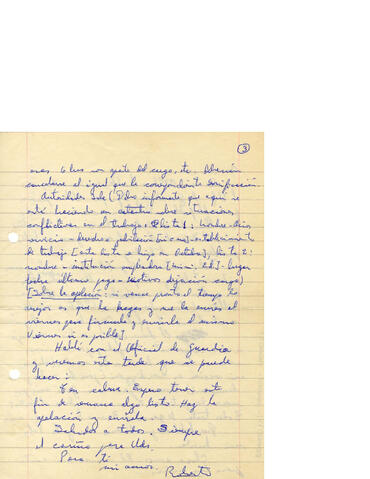 3
esas 6 lus un gasto del cargo, etc. Deberían
cancelarse al igual que la correspondiente bonificación.
Autoridades Sede (Pedro informante que aquí se
está haciendo un catastro sobre situaciones
conflictivas en el trabajo. lista 1: nombre - años
servicio - deudor - población - establecimiento
de trabajo [esta lista a largo en Octubre], lista 2:
nombre - institución empleadora - lugar
fecha último pago - motivos dejación cargo)
[Sobre la apelación: si vence pronto el tiempo lo
mejor es que la hagas y me la envíes el
viernes para firmarla y enviarla el mismo
Viernes si es posible]
Hablé con el Oficial de Guardia
y veremos esta tarde que se puede
hacer:
Ten calma. Espero tener este
fin de semana algo listo. Haz la
apelación y envíala.
Saludos a todos. Siempre
el cariño para Uds.
Para ti
mi amor.
Roberto